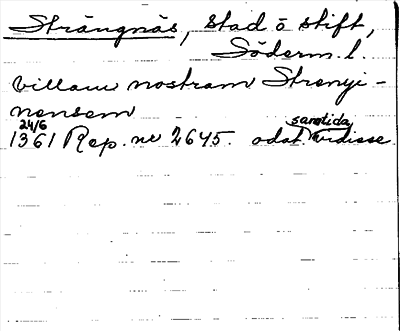 Strängnäs, stad o stift,
Söderm. l.
villam nostram Strenyi-
nensem
24/6 samtida
1361 Rep. nr 2645. odat. vidisse.